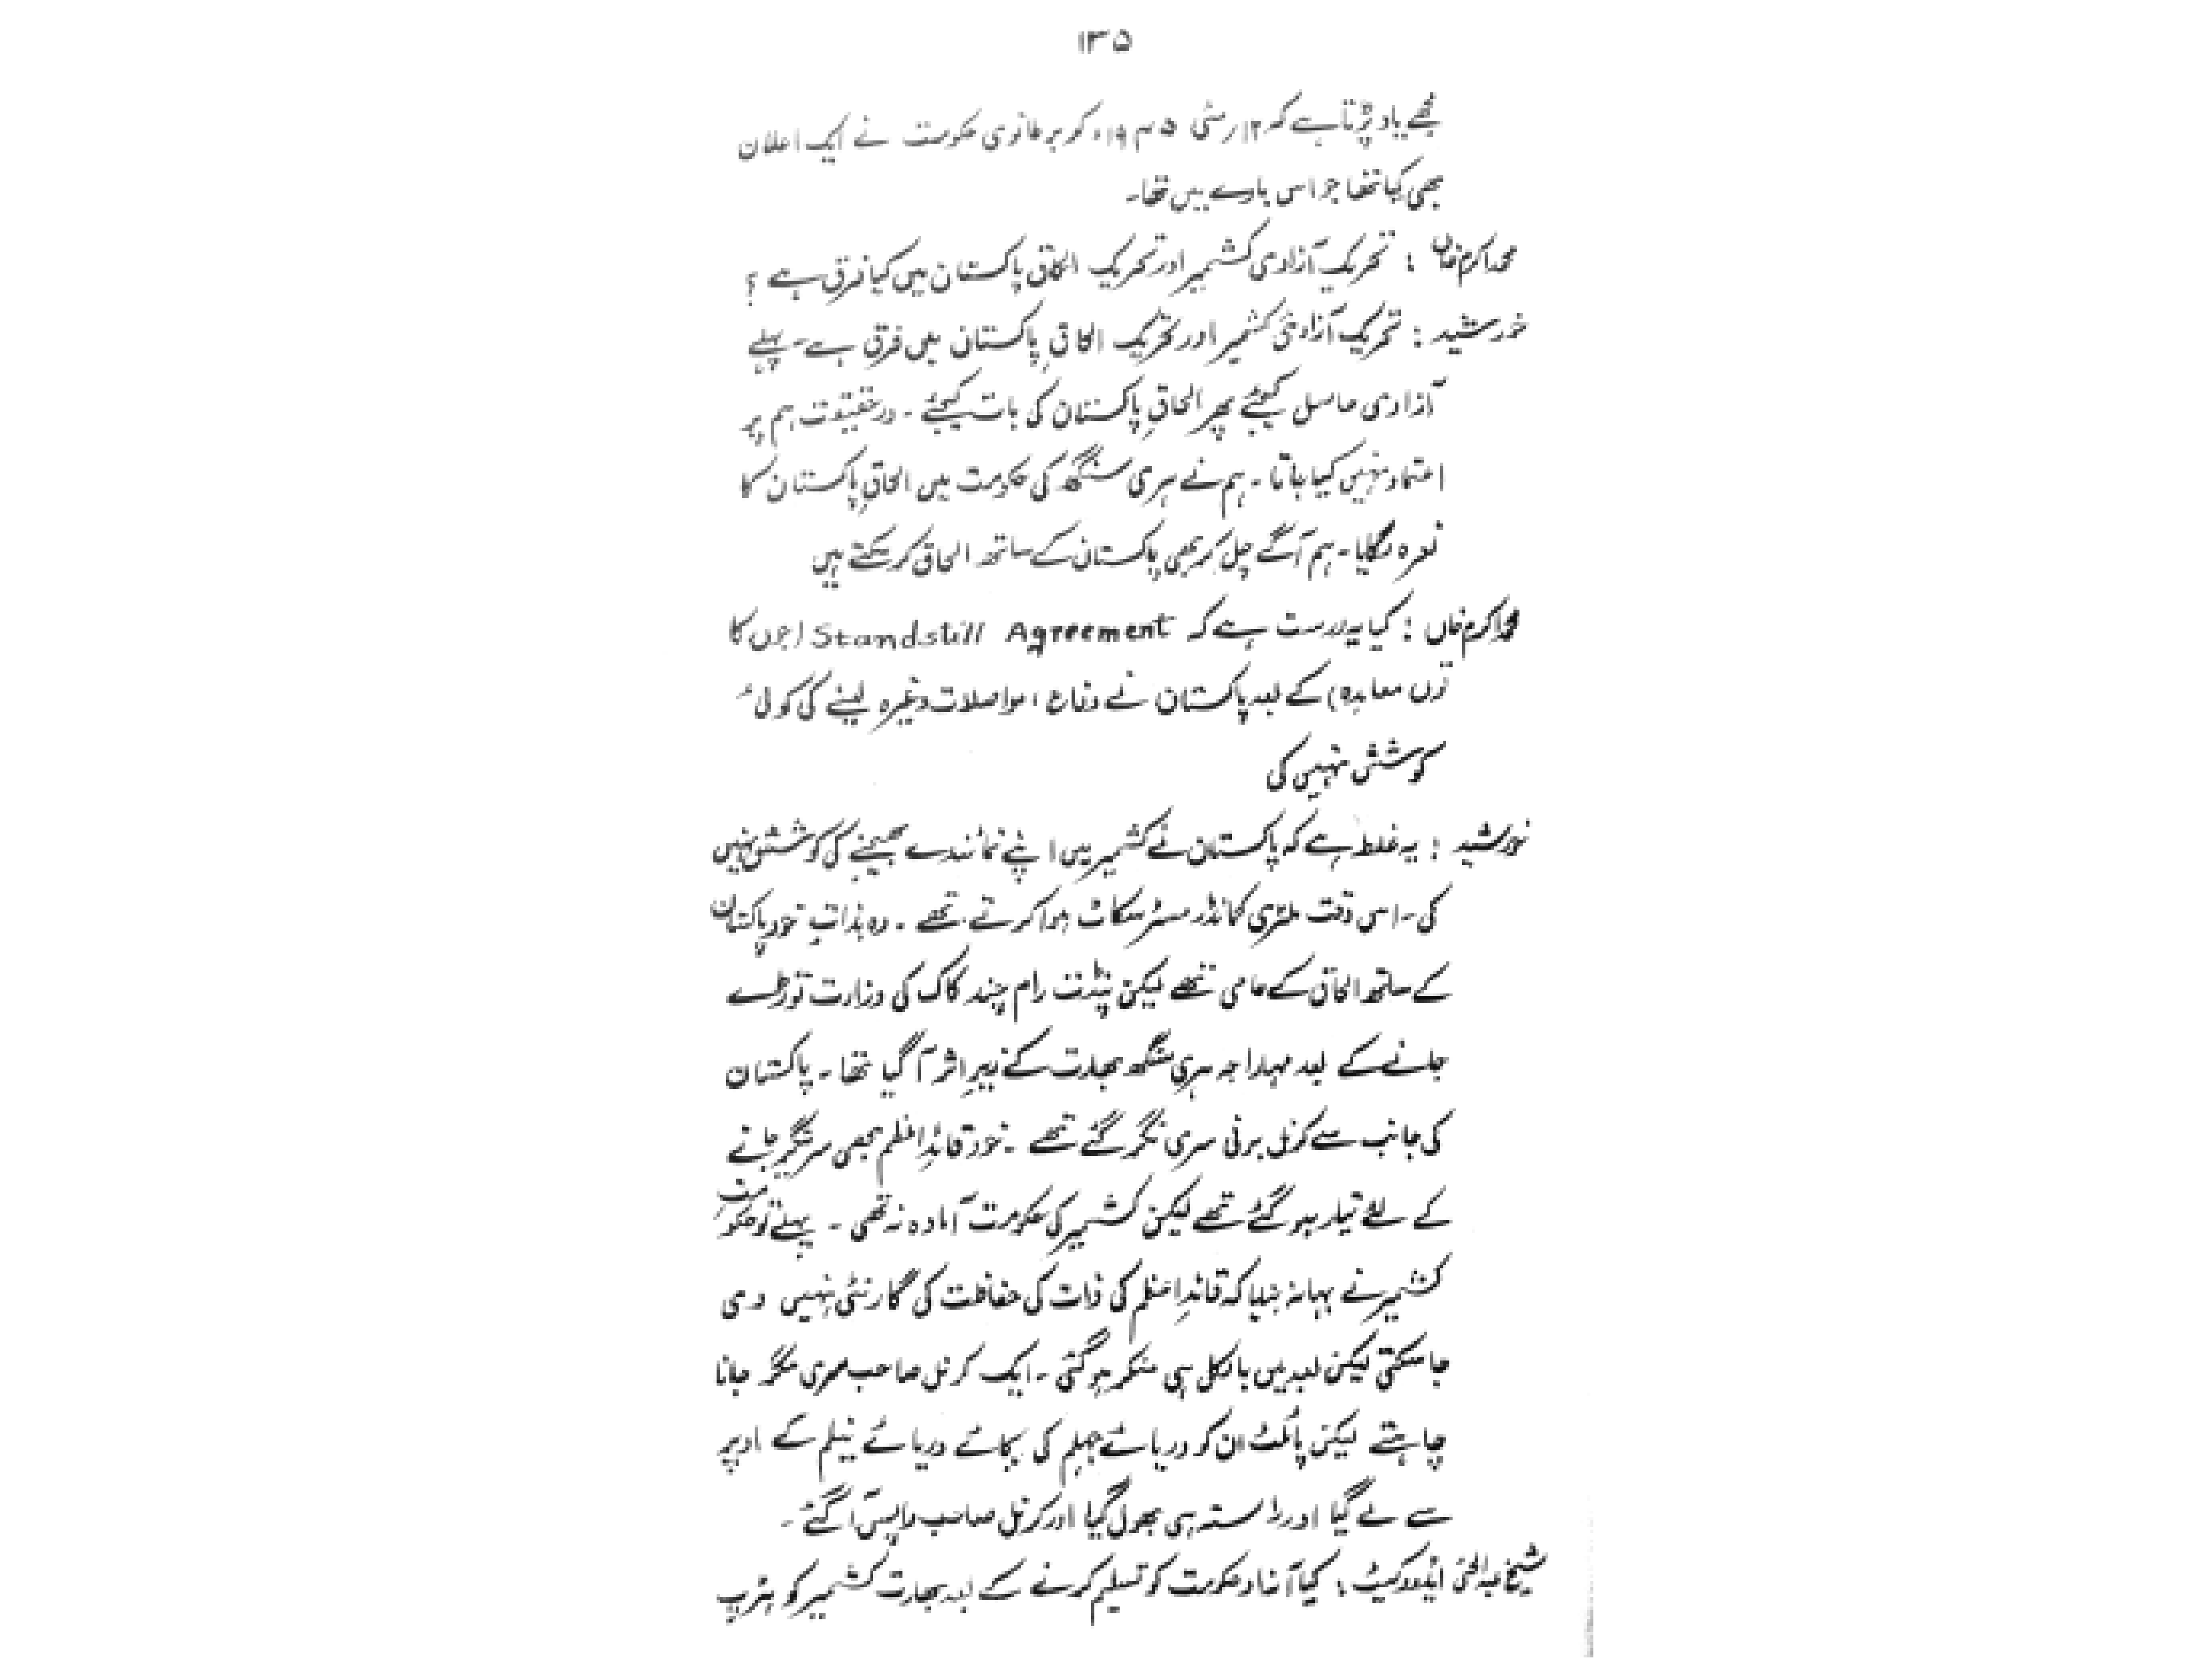 ۱۳۵
مجھے یاد پڑتا ہے کہ ۱۲ر مئی ۱۹۴۵ء کو برطانوی حکومت نے ایک اعلان
بھی کیا تھا جو اس بارے میں تھا۔
محمد اکرم خاں : تحریک آزادی کشمیر اور تحریک الحاق پاکستان میں کیا فرق ہے ؟
خورشید : تحریک آزادیٔ کشمیر اور تحریک الحاقِ پاکستان میں فرق ہے۔ پہلے
آزادی حاصل کیجئے پھر الحاقِ پاکستان کی بات کیجئے ۔ درحقیقت ہم پر
اعتماد نہیں کیا جاتا ۔ ہم نے ہری سنگھ کی حکومت میں الحاقِ پاکستان کا
نعرہ لگایا۔ ہم آگے چل کر بھی پاکستان کے ساتھ الحاق کر سکتے ہیں
محمد اکرم خاں : کیا یہ درست ہے کہ Standstill Agreement (جوں کا
توں معاہدہ) کے بعد پاکستان نے دفاع ، مواصلات وغیرہ لینے کی کوئی
کوشش نہیں کی
خورشید : یہ غلط ہے کہ پاکستان نے کشمیر میں اپنے نمائندے بھیجنے کی کوشش نہیں
کی۔ اس وقت ملٹری کمانڈر مسٹر سکاٹ ہوا کرتے تھے ۔ وہ بذاتِ خود پاکستان
کے ساتھ الحاق کے حامی تھے لیکن پنڈت رام چند کاک کی وزارت توڑے
جانے کے بعد مہاراجہ ہری سنگھ بھارت کے زیرِ اثر آ گیا تھا ۔ پاکستان
کی جانب سے کرنل برنی سری نگر گئے تھے ۔ خود قائدِ اعظم بھی سرینگر جانے
کے لئے تیار ہو گئے تھے لیکن کشمیر کی حکومت آمادہ نہ تھی ۔ پہلے تو حکومت
کشمیر نے بہانہ بنایا کہ قائدِ اعظم کی ذات کی حفاظت کی گارنٹی نہیں دی
جا سکتی لیکن بعد میں بالکل ہی منکر ہو گئی ۔ ایک کرنل صاحب سری نگر جانا
چاہتے لیکن پائلٹ ان کو دریائے جہلم کی بجائے دریائے نیلم کے اوپر
سے لے گیا اور راستہ ہی بھول گیا اور کرنل صاحب واپس آ گئے ۔
شیخ عبدالحئ ایڈووکیٹ : کیا آزاد حکومت کو تسلیم کرنے کے بعد بھارت کشمیر کو ہڑپ